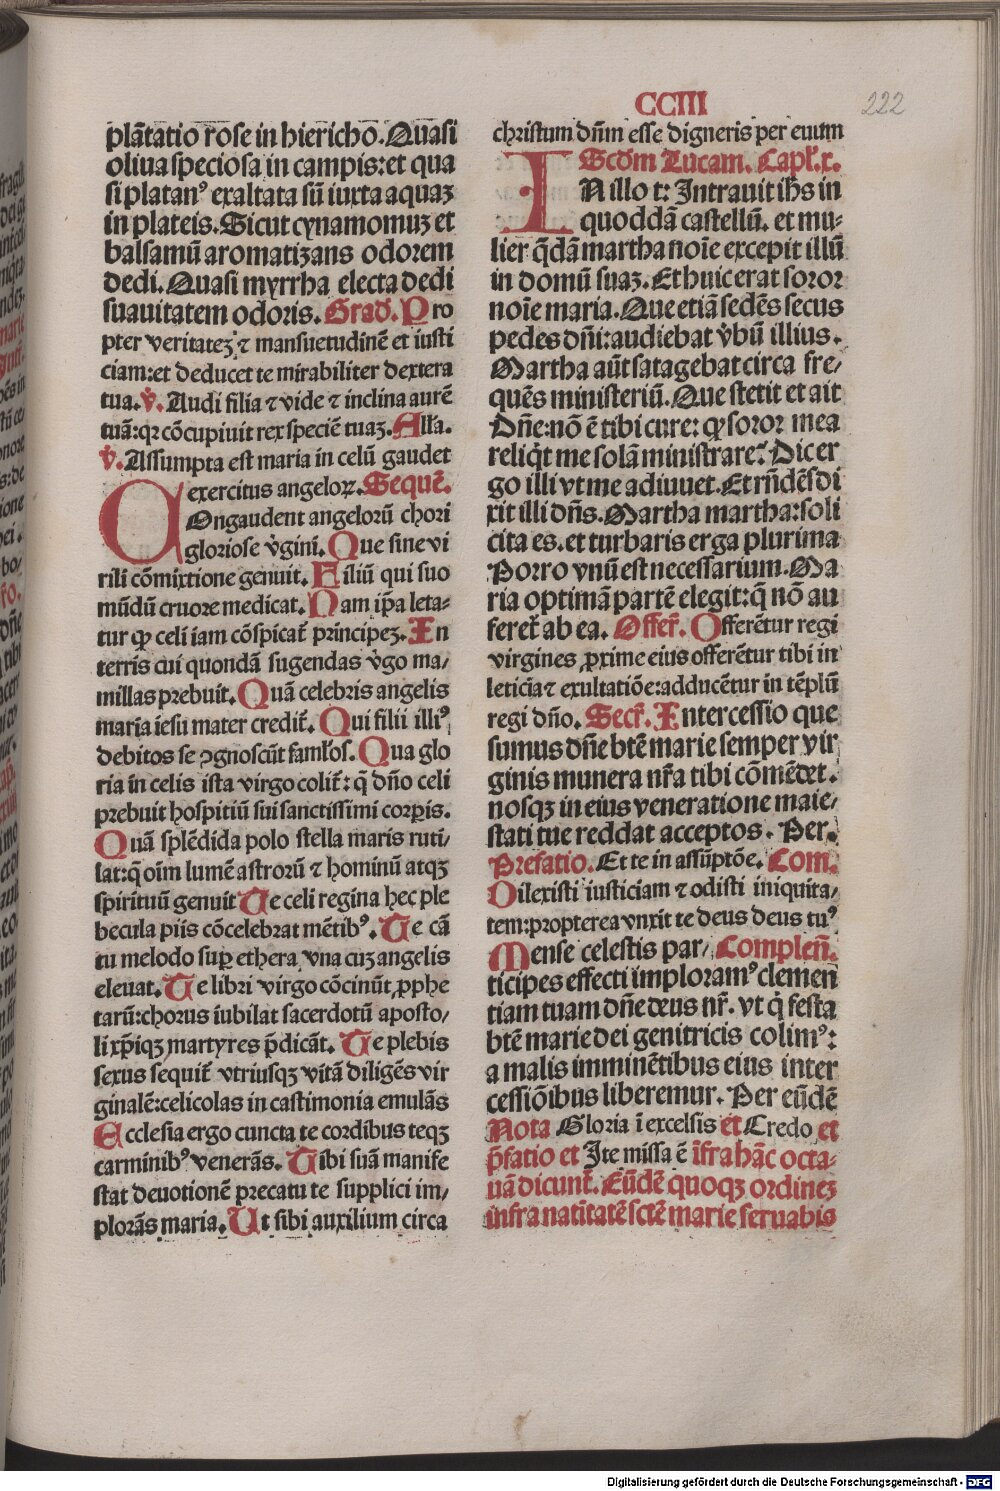 CCIII
222
plãtatio rose in hiericho. Quasi
oliua speciosa in campis: et qua
si platanꝰ exaltata sũ iuxta aquaꝫ
in plateis. Sicut cynamomuꝫ et
balsamũ aromatizans odorem
dedi. Quasi myrrha electa dedi
suauitatem odoris. Grad̃. Pro
pter veritateꝫ ⁊ mansuetudinẽ et iusti
ciam: et deducet te mirabiliter dextera
tua. ℣. Audi filia ⁊ vide ⁊ inclina aurẽ
tuã: qꝛ cõcupiuit rex speciẽ tuaꝫ. Alľa.
℣. Assumpta est maria in celũ gaudet
exercitus angeloꝝ. Sequẽ.
COngaudent angelorũ chori
gloriose v̓gini. Que sine vi
rili cõmixtione genuit. Filiũ qui suo
mũdũ cruore medicat. Nam ip̃a leta-
tur ꝙ celi iam cõspicat̃ principeꝫ. In
terris cui quondã sugendas v̓go ma/
millas prebuit. Quã celebris angelis
maria iesu mater credit̃. Qui filii illiꝰ
debitos se ꝯgnoscũt famľos. Qua glo
ria in celis ista virgo colit̃: q̃ dño celi
prebuit hospitiũ sui sanctissimi corꝑis.
Quã splẽdida polo stella maris ruti/
lat: q̃ oĩm lumẽ astrorũ ⁊ hominũ atqꝫ
spirituũ genuit Te celi regina hec ple
becula piis cõcelebrat mẽtibꝰ. Te cã
tu melodo suꝑ ethera vna cuꝫ angelis
eleuat. Te libri virgo cõcinũt ꝓphe
tarũ: chorus iubilat sacerdotũ aposto/
li xp̃iqꝫ martyres p̃dicãt. Te plebis
sexus sequit̃ vtriusqꝫ vitã diligẽs vir
ginalẽ: celicolas in castimonia emulãs
Ecclesia ergo cuncta te cordibus teqꝫ
carminibꝰ venerãs. Tibi suã manife
stat deuotionẽ precatu te supplici im/
plorãs maria. Ut sibi auxilium circa
christum dñm esse digneris per euum
Scďm Lucam. Capľ. x.
IN illo t: Intrauit ihs in
quoddã castellũ. et mu-
lier q̃dã martha noĩe excepit illũ
in domũ suaꝫ. Et huic erat soror
noĩe maria. Que etiã sedẽs secus
pedes dñi: audiebat v̓bũ illius.
Martha aũt satagebat circa fre/
quẽs ministeriũ. Que stetit et ait
Dñe: nõ ẽ tibi cure: ꝙ soror mea
reliq̃t me solã ministrare? Dic er
go illi vt me adiuuet. Et rñdẽs di
xit illi dñs. Martha martha: soli
cita es. et turbaris erga plurima
Porro vnũ est necessarium. Ma
ria optimã partẽ elegit: q̃ nõ au
feret̃ ab ea. Offer̃. Offerẽtur regi
virgines ꝓxime eius offerẽtur tibi in
leticia ⁊ exultatiõe: adducẽtur in tẽplũ
regi dño. Secr̃. Intercessio que
sumus dñe btẽ marie semper vir
ginis munera nr̃a tibi cõmẽdet.
nosqꝫ in eius veneratione maie/
stati tue reddat acceptos. Per.
Prefatio. Et te in assũptõe. Com.
Dilexisti iusticiam ⁊ odisti iniquita/
tem: propterea vnxit te deus deus tuꝰ
Mense celestis par/ Complen̄.
ticipes effecti imploramꝰ clemen̄
tiam tuam dñe deus nr̃. vt q̃ festa
btẽ marie dei genitricis colimꝰ:
a malis imminẽtibus eius inter
cessiõibus liberemur. Per eũdẽ
Nota Gloria ĩ excelsis et Credo et
p̃fatio et Ite missa ẽ ĩfra hãc octa-
uã dicunt̃. Eũdẽ quoqꝫ ordineꝫ
infra natiuitatẽ sctẽ marie seruabis
Digitalisierung gefördert durch die Deutsche Forschungsgemeinschaft - DFG